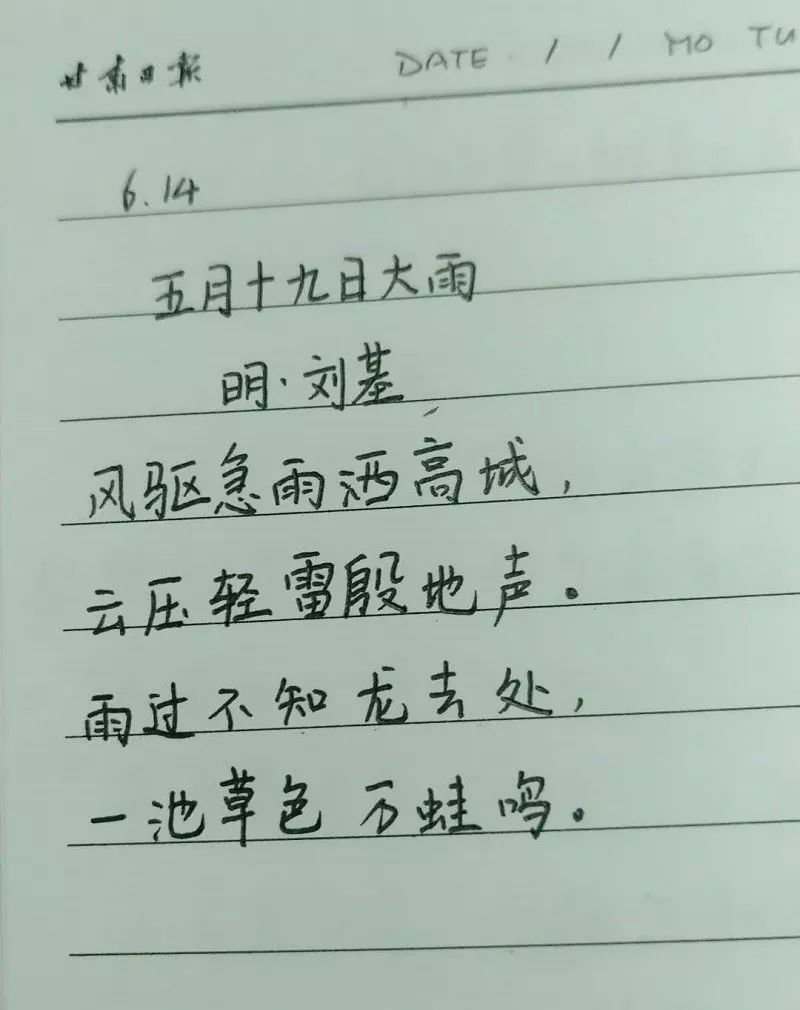 甘肃日报 DATE / / MO TU
6.14
五月十九日大雨
明·刘基
风驱急雨洒高城，
云压轻雷殷地声。
雨过不知龙去处，
一池草色万蛙鸣。